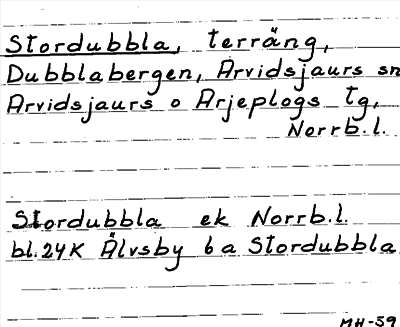 Stordubbla, terräng,
Dubblabergen, Arvidsjaurs sn
Arvidsjaurs o Arjeplogs tg,
Norrb.l.
Stordubbla ek Norrb.l.
bl.24K Älvsby 6a Stordubbla
MH-59